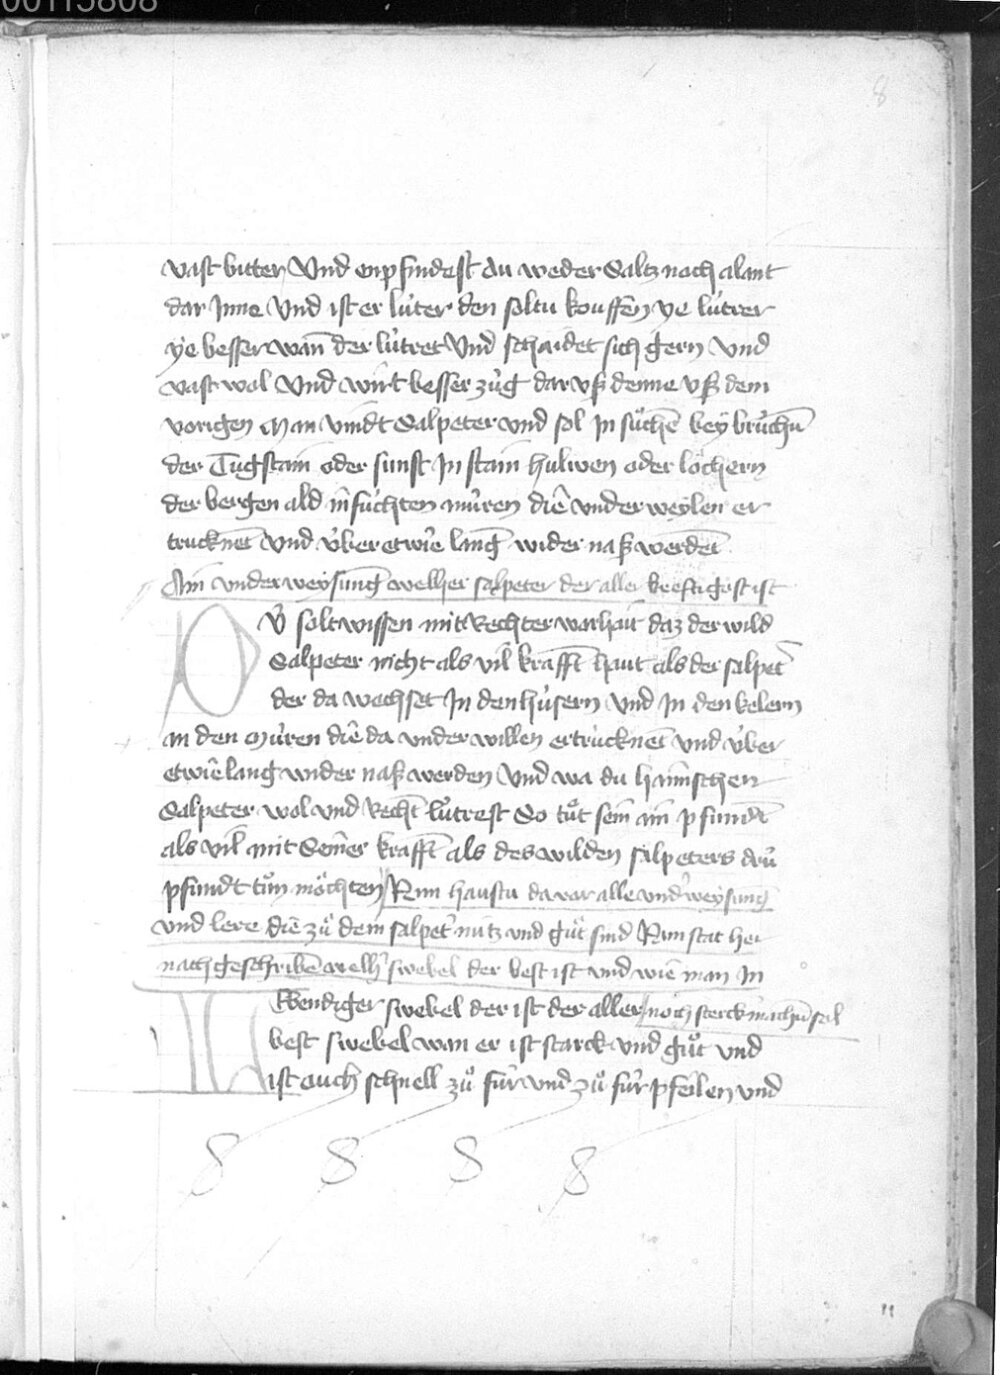 00115808
8
vast bitter Vnd enpfindest du weder Saltz noch alant
dar Inne Vnd ist er lu̇ter den soltu kouffen ye lu̇trer
ye besser wan̄ der lu̇tret Vnd schaidet sich gern Vnd
vast wol Vnd wirt besser zu̇g dar vß denne vß dem
vorigen Man vindt Salpeter vnd sol In su̇chē bey bru̇chn̄
der Tugstain oder sunst In stain hulwen oder löchern
der bergen ald in fu̇chten mu̇ren die vnder weylen er
trucknet Vnd v̇ber etwie lang wider naß werdet
Ain vnder weysung welher salpeter der aller kreftigost ist
Dv̊ solt wissen mit Rechter warhait daz der wild
Salpeter nicht als vil krafft haut als der salpet̄
der da wechset In den hu̇sern Vnd In den kelern
in den Mu̇ren die da vnder willen ertrucknet vnd v̇ber
etwie lang wider naß werden Vnd wa du haimschen
Salpeter wol vnd Recht lu̇trest So tůt sein ain pfundt
als vil mit Seiner krafft als des wilden salpeters dru̇
pfundt tůn möchten Nun hastu da vor alle vnd̄weysung
vnd lere die zů dem salpet̄ nütz vnd gůt sind Nun stat hei
nach geschribē welh̄ swebel der best ist vnd wie man In
Lebendiger swebel der ist der aller noch sterck machn̄ sol
best swebel wan er ist starck vnd gůt vnd
ist ouch schnell zů für vnd zů für pfeilen vnd
8 8 8 8
11